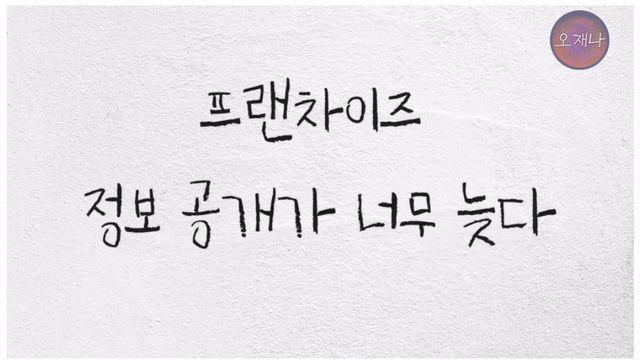 오재나
프랜차이즈
정보 공개가 너무 늦다